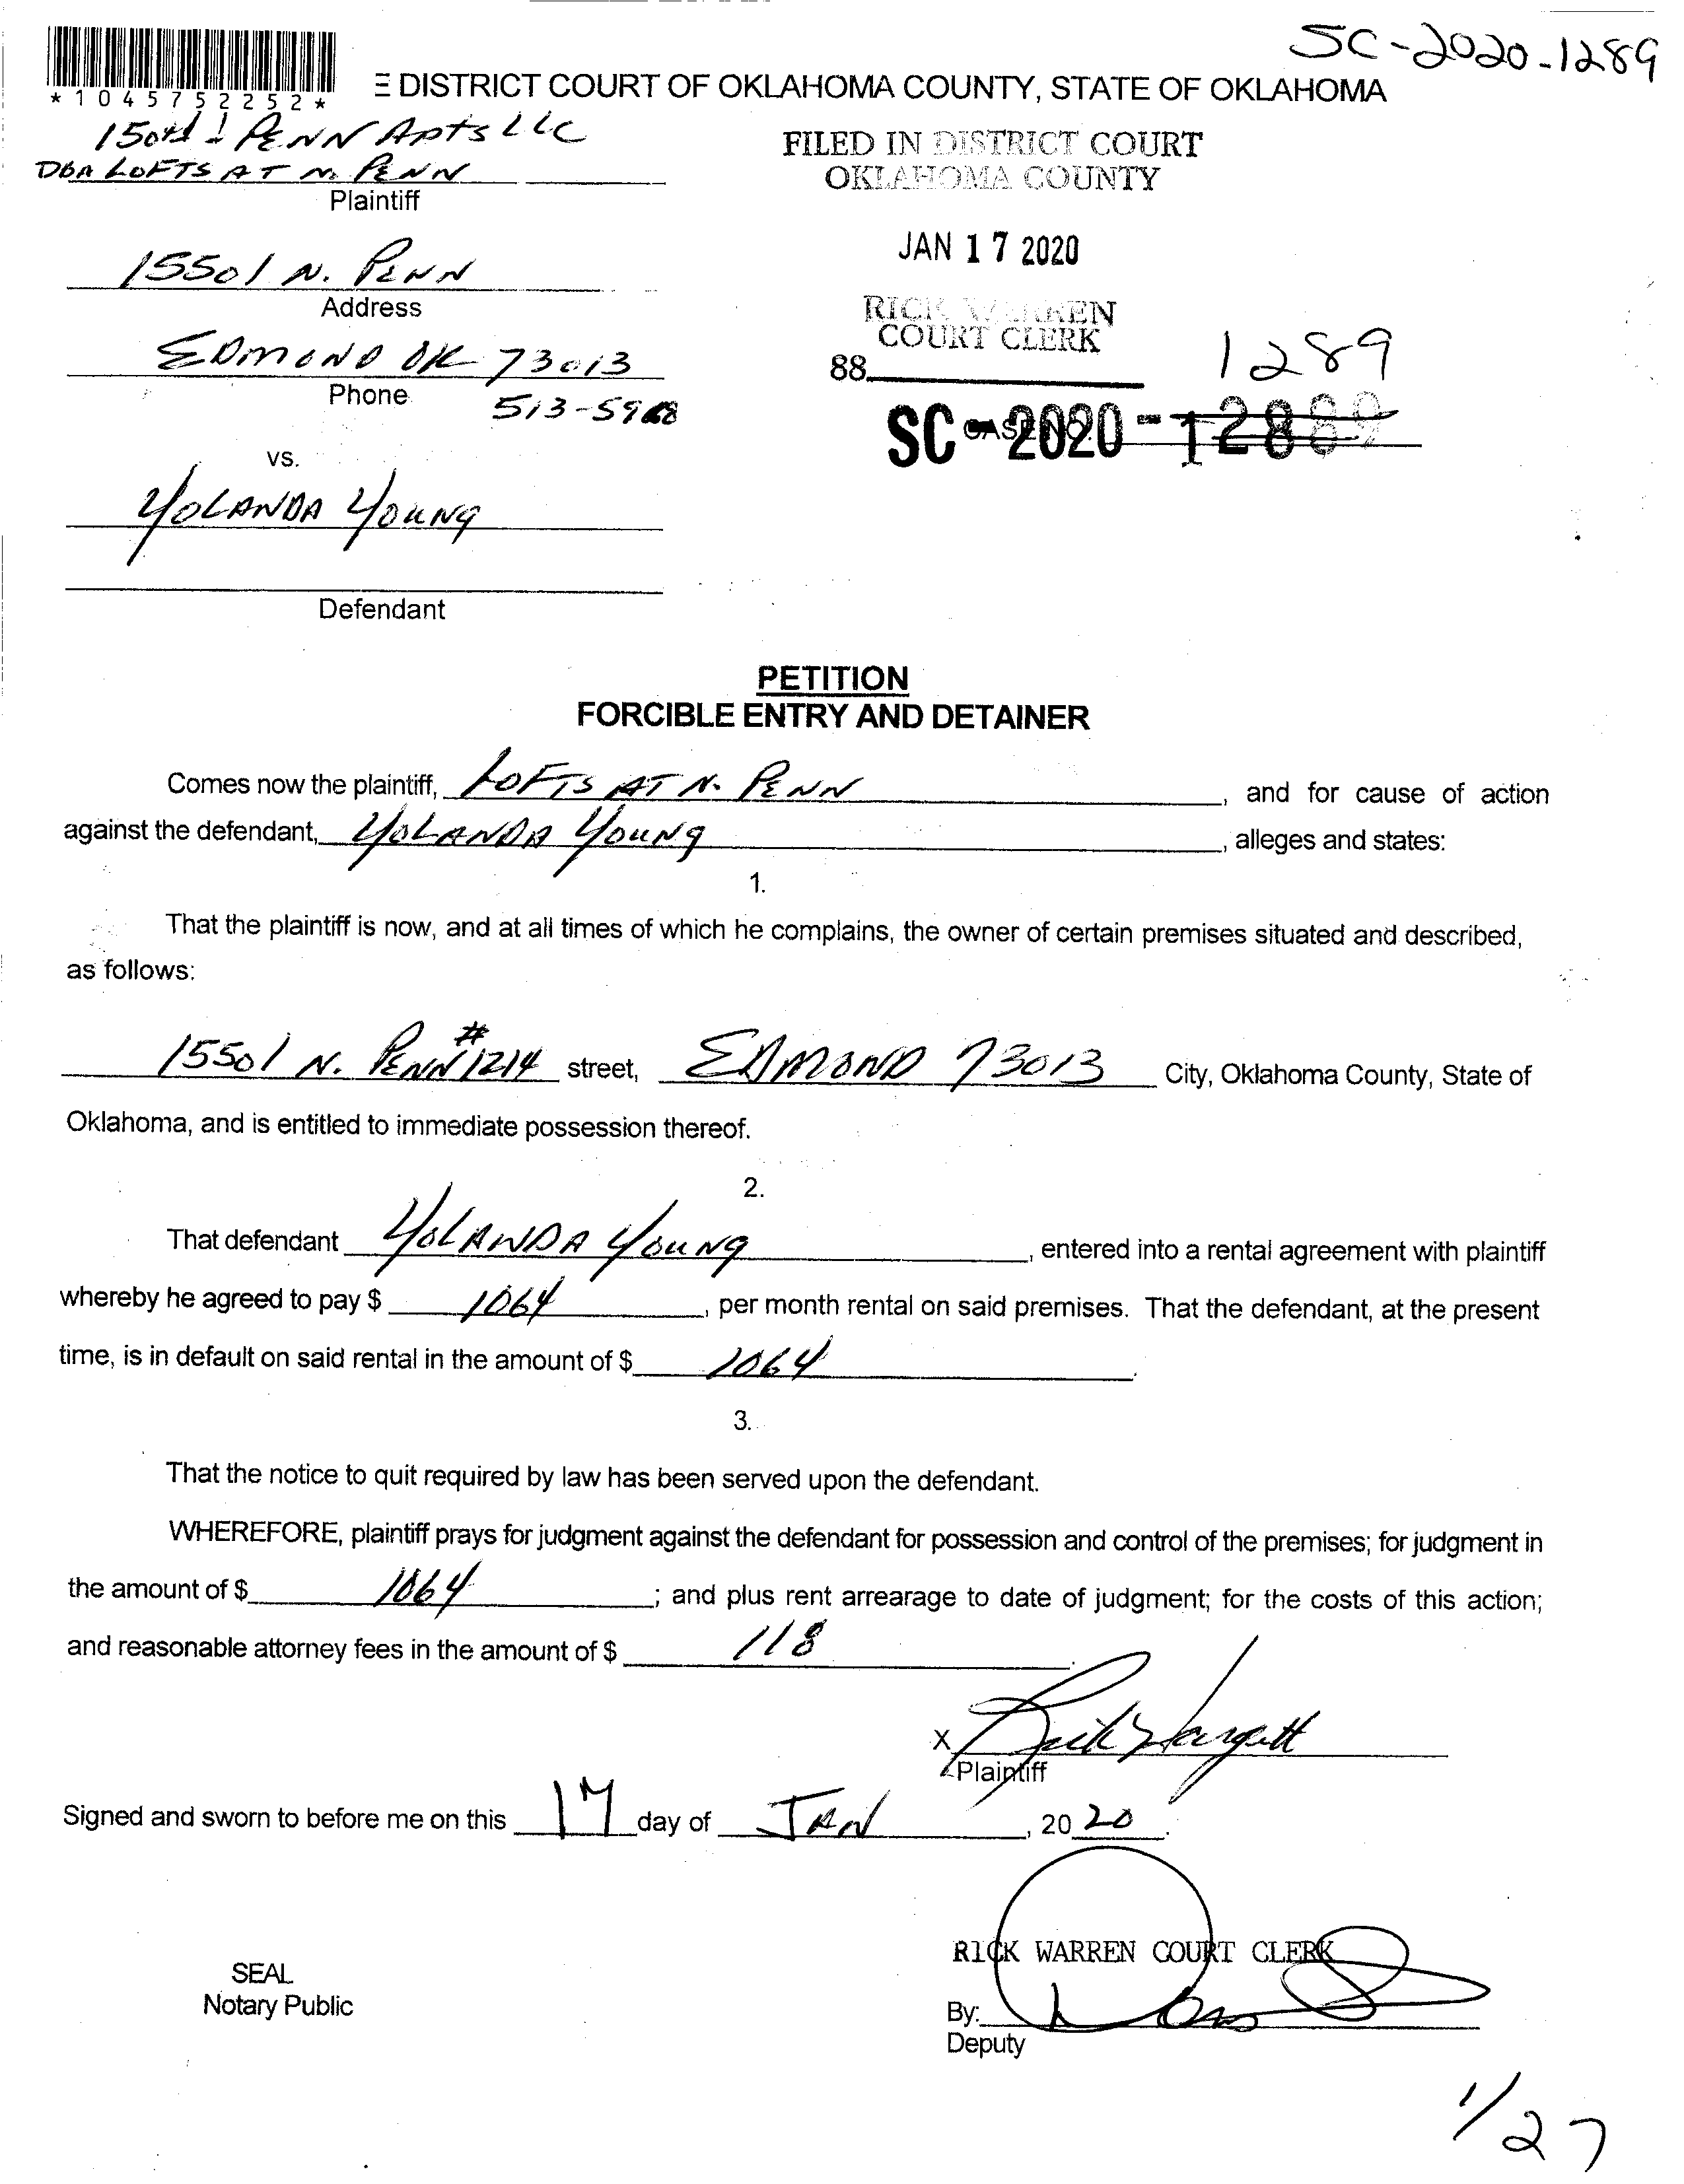 SC-2020-1289
*1045752252*
E DISTRICT COURT OF OKLAHOMA COUNTY, STATE OF OKLAHOMA
150th & PENN Apts LLC
DBA LOFTS AT N. PENN
Plaintiff
FILED IN DISTRICT COURT
OKLAHOMA COUNTY
JAN 17 2020
15501 N. PENN
Address
RICK WARREN
COURT CLERK
EDMOND OK 73013
88
1289
Phone
513-5968
SC-2020-1288
CASE NO.
vs.
YOLANDA YOUNG
Defendant
PETITION
FORCIBLE ENTRY AND DETAINER
Comes now the plaintiff, LOFTS AT N. PENN, and for cause of action
against the defendant, YOLANDA YOUNG, alleges and states:
1.
That the plaintiff is now, and at all times of which he complains, the owner of certain premises situated and described,
as follows:
15501 N. PENN #1214 street, EDMOND 73013 City, Oklahoma County, State of
Oklahoma, and is entitled to immediate possession thereof.
2.
That defendant YOLANDA YOUNG, entered into a rental agreement with plaintiff
whereby he agreed to pay $ 1064, per month rental on said premises. That the defendant, at the present
time, is in default on said rental in the amount of $ 1064.
3.
That the notice to quit required by law has been served upon the defendant.
WHEREFORE, plaintiff prays for judgment against the defendant for possession and control of the premises; for judgment in
the amount of $ 1064; and plus rent arrearage to date of judgment; for the costs of this action;
and reasonable attorney fees in the amount of $ 118.
X Rick Hargett
Plaintiff
Signed and sworn to before me on this 17 day of JAN, 2020.
RICK WARREN COURT CLERK
SEAL
Notary Public
By:
Deputy
1/27